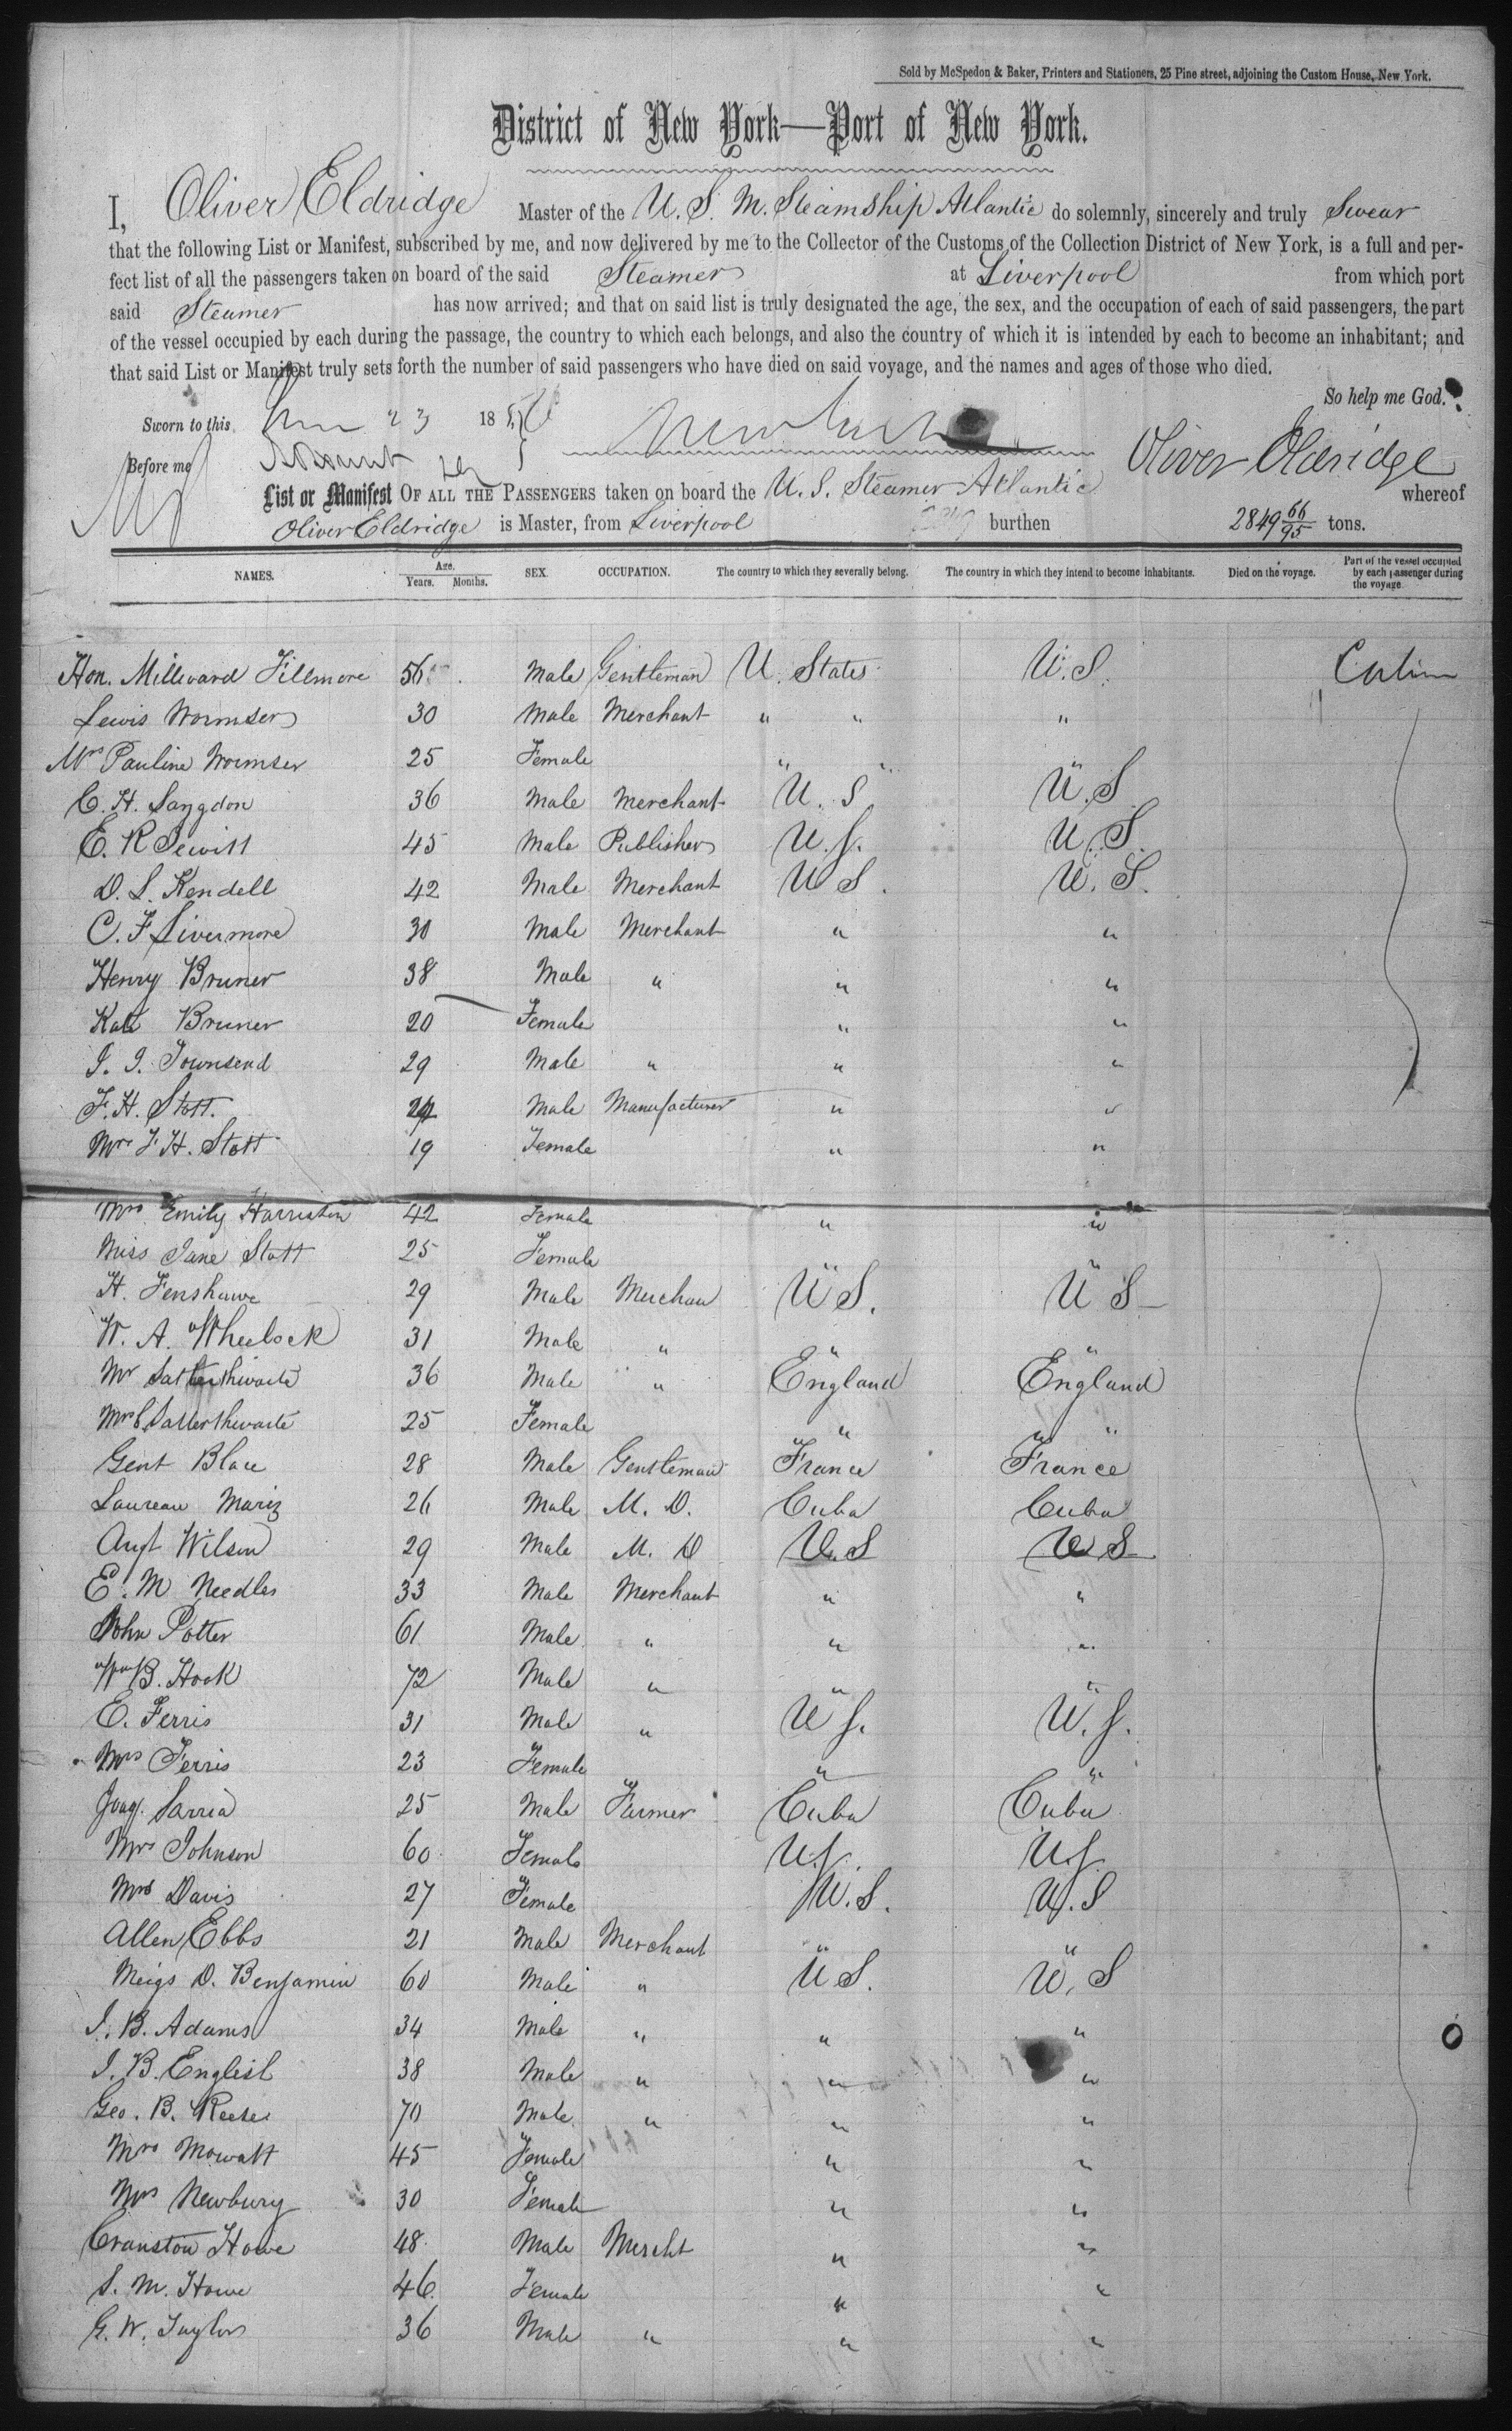 Sold by McSpedon & Baker, Printers and Stationers, 25 Pine street, adjoining the Custom House, New York.
District of New York—Port of New York.
I, Oliver Eldridge Master of the U. S. M. Steamship Atlantic do solemnly, sincerely and truly Swear
that the following List or Manifest, subscribed by me, and now delivered by me to the Collector of the Customs of the Collection District of New York, is a full and per-
fect list of all the passengers taken on board of the said Steamer at Liverpool from which port
said Steamer has now arrived; and that on said list is truly designated the age, the sex, and the occupation of each of said passengers, the part
of the vessel occupied by each during the passage, the country to which each belongs, and also the country of which it is intended by each to become an inhabitant; and
that said List or Manifest truly sets forth the number of said passengers who have died on said voyage, and the names and ages of those who died.
So help me God.
Sworn to this 23 1856
Before me Oliver Eldridge
List or Manifest OF ALL THE PASSENGERS taken on board the U. S. Steamer Atlantic whereof
Oliver Eldridge is Master, from Liverpool burthen 2849 66/95 tons.
NAMES. Age. Years. Months. SEX. OCCUPATION. The country to which they severally belong. The country in which they intend to become inhabitants. Died on the voyage. Part of the vessel occupied by each passenger during the voyage
Hon. Milleward Fillmore 56 Male Gentleman U. States U. S. Cabin
Lewis Wormser 30 Male Merchant " " "
Mrs Pauline Wormser 25 Female " " "
C. H. Langdon 36 Male Merchant U. S U. S
E. R Jewitt 45 Male Publisher U. S. U. S.
D. S. Kendell 42 Male Merchant U S. U. S.
C. F Livermore 30 Male Merchant " "
Henry Bruner 38 Male " " "
Kate Bruner 20 Female " "
I. I. Townsend 29 Male " " "
F. H. Stott. Male Manufacturer " "
Mrs F H. Stott 19 Female " "
Mrs Emily Harriston 42 Female " "
Miss Jane Stott 25 Female " "
H. Fenshawe 29 Male Merchan U S. U S
W. A. Wheelock 31 Male " " "
Mr Satterthwaite 36 Male " England England
Mrs C Satterthwaite 25 Female " " "
Gent Blace 28 Male Gentleman France France
Laureau Mariz 26 Male M. D. Cuba Cuba
Augt Wilson 29 Male M. D U. S U S
E. M Needles 33 Male Merchant " "
John Potter 61 Male " " "
Wm B. Hook 72 Male " " "
E. Ferris 31 Male " U S. U. S.
Mrs Ferris 23 Female " "
Joaq. Sarria 25 Male Farmer Cuba Cuba
Mrs Johnson 60 Female U. S. U. S.
Mrs Davis 27 Female U. S. U. S
Allen Ebbs 21 Male Merchant " "
Meigs D. Benjamin 60 Male " U S. U. S
I. B. Adams 34 Male " " "
I. B. English 38 Male " " "
Geo. B. Reese 70 Male " " "
Mrs Mowatt 45 Female " "
Mrs Newbury 30 Female " "
Cranston Howe 48 Male Mercht " "
S. M. Howe 46 Female " "
G. W. Taylor 36 Male " " "